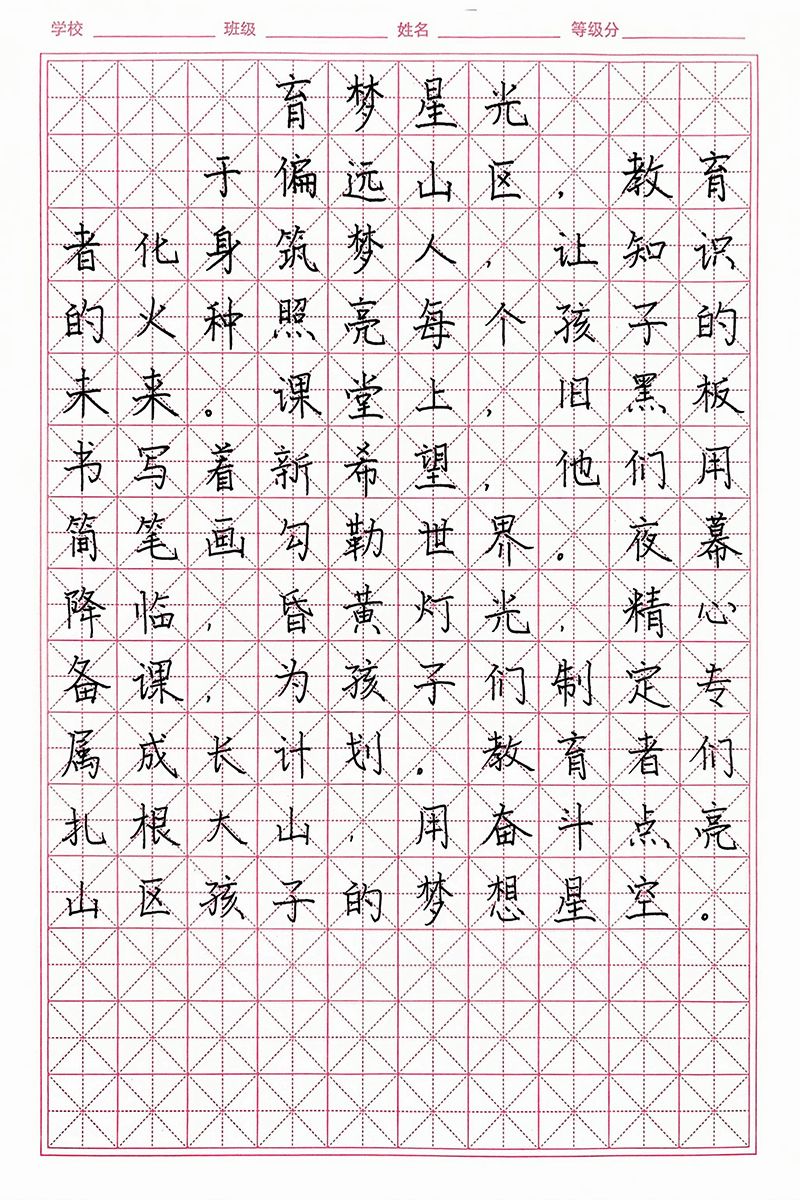 学校 班级 姓名 等级分
育梦星光
于偏远山区，教育
者化身筑梦人，让知识
的火种照亮每个孩子的
未来。课堂上，旧黑板
书写着新希望，他们用
简笔画勾勒世界。夜幕
降临，昏黄灯光，精心
备课，为孩子们制定专
属成长计划。教育者们
扎根大山，用奋斗点亮
山区孩子的梦想星空。